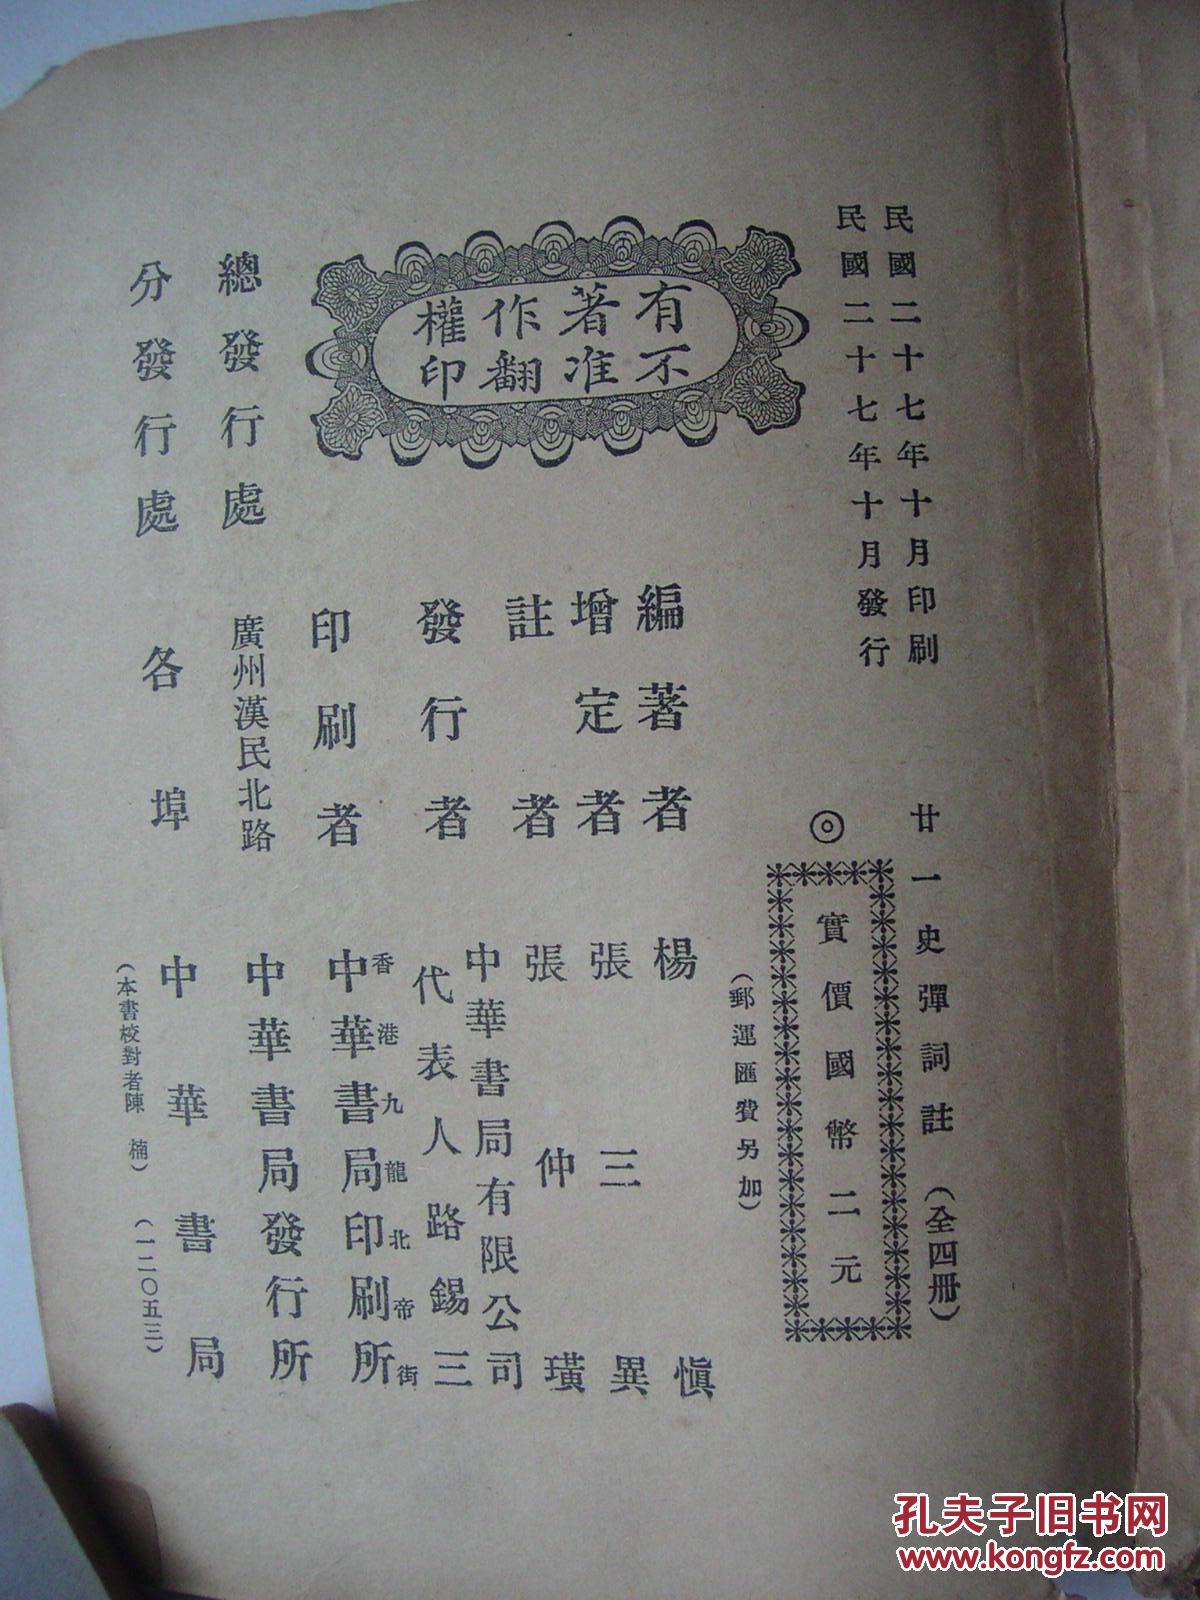 民國二十七年十月印刷
民國二十七年十月發行
廿一史彈詞註(全四冊)
◎
實價國幣二元
(郵運匯費另加)
有著作權
不准翻印
編著者 楊慎
增定者 張三異
註者 張仲璜
發行者 中華書局有限公司
代表人路錫三
印刷者 香港九龍北帝街
中華書局印刷所
總發行處 廣州漢民北路 中華書局發行所
分發行處 各埠 中華書局
(本書校對者陳楠)(一二〇五三)
孔夫子旧书网
www.kongfz.com